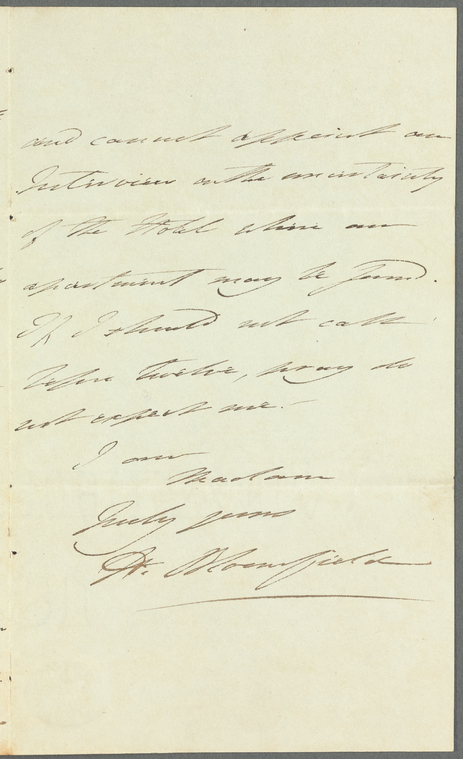 and cannot appoint an
Interview on the uncertainty
of the Hotel where an
apartment may be found.
If I should not call
before twelve, pray do
not expect me. —
I am
Madam
Truly yours
H. Bloomfield